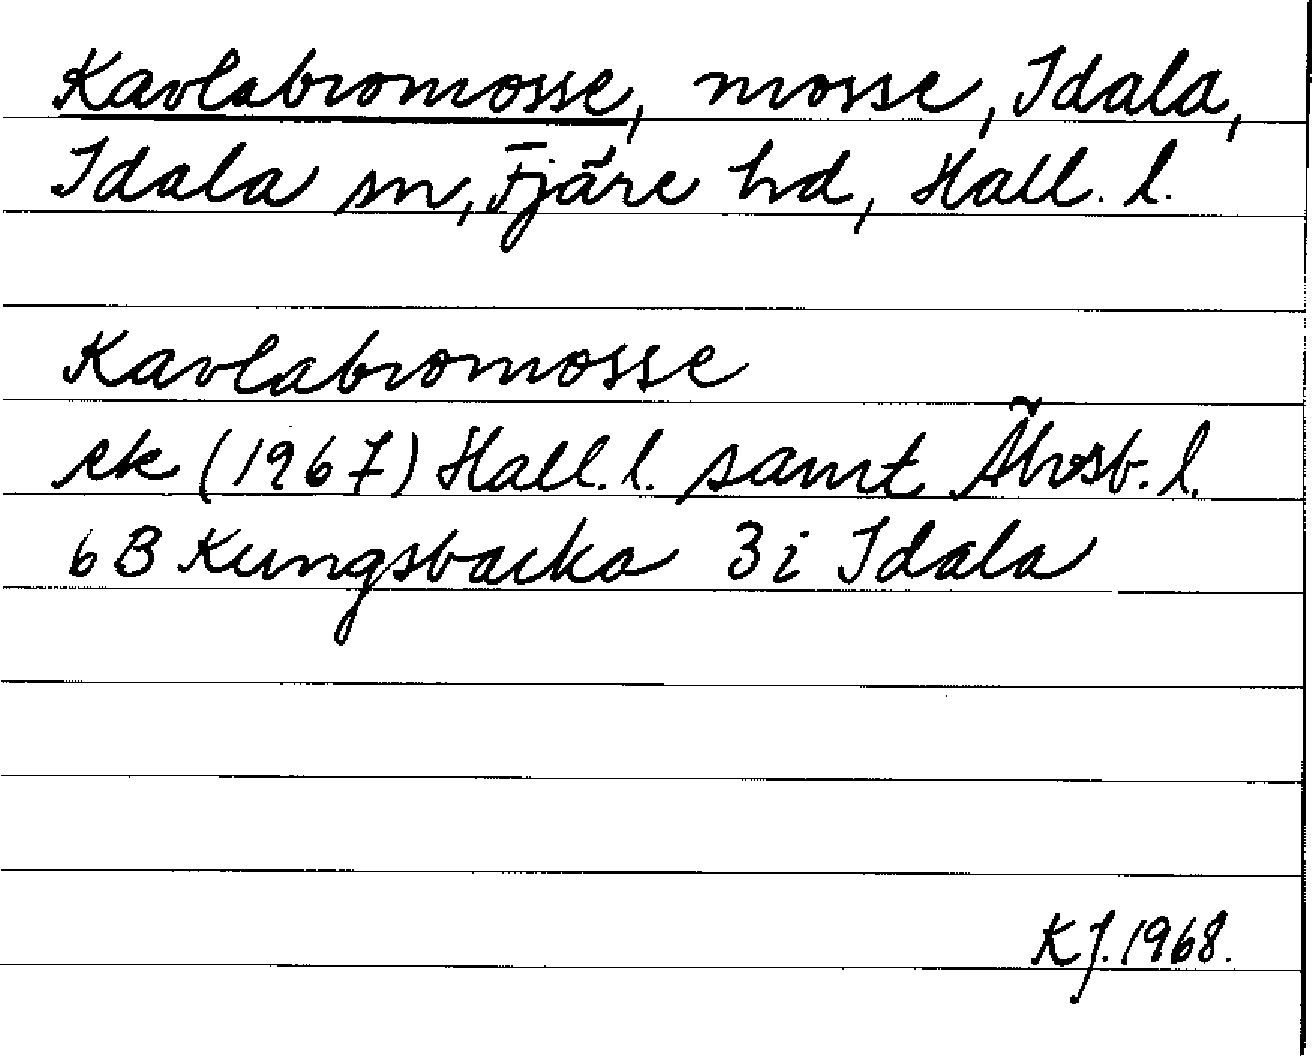 Kavlabromosse, mosse, Idala,
Idala sn, Fjäre hd, Hall. l.
Kavlabromosse
ek (1967) Hall. l. samt Älvsb. l.
6B Kungsbacka 3i Idala
KJ. 1968.